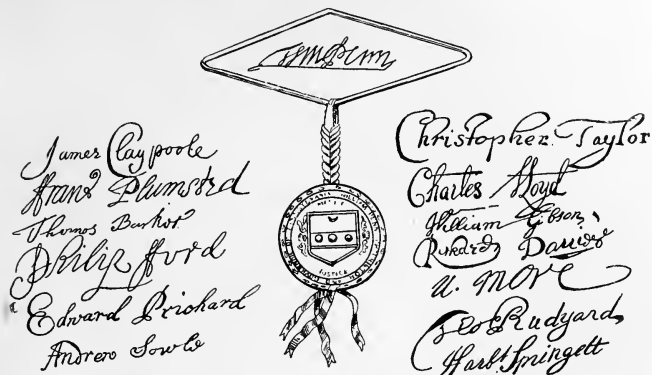 Wm Penn
James Claypoole
Franc Plumsted
Thomas Barker
Philip fford
Edward Prichard
Andrew Sowle
MERCY
JUSTICE
Christopher Taylor
Charles Lloyd
William Gibson,
Richard Davies
N. More
Geo: Rudyard,
Harbt Springett